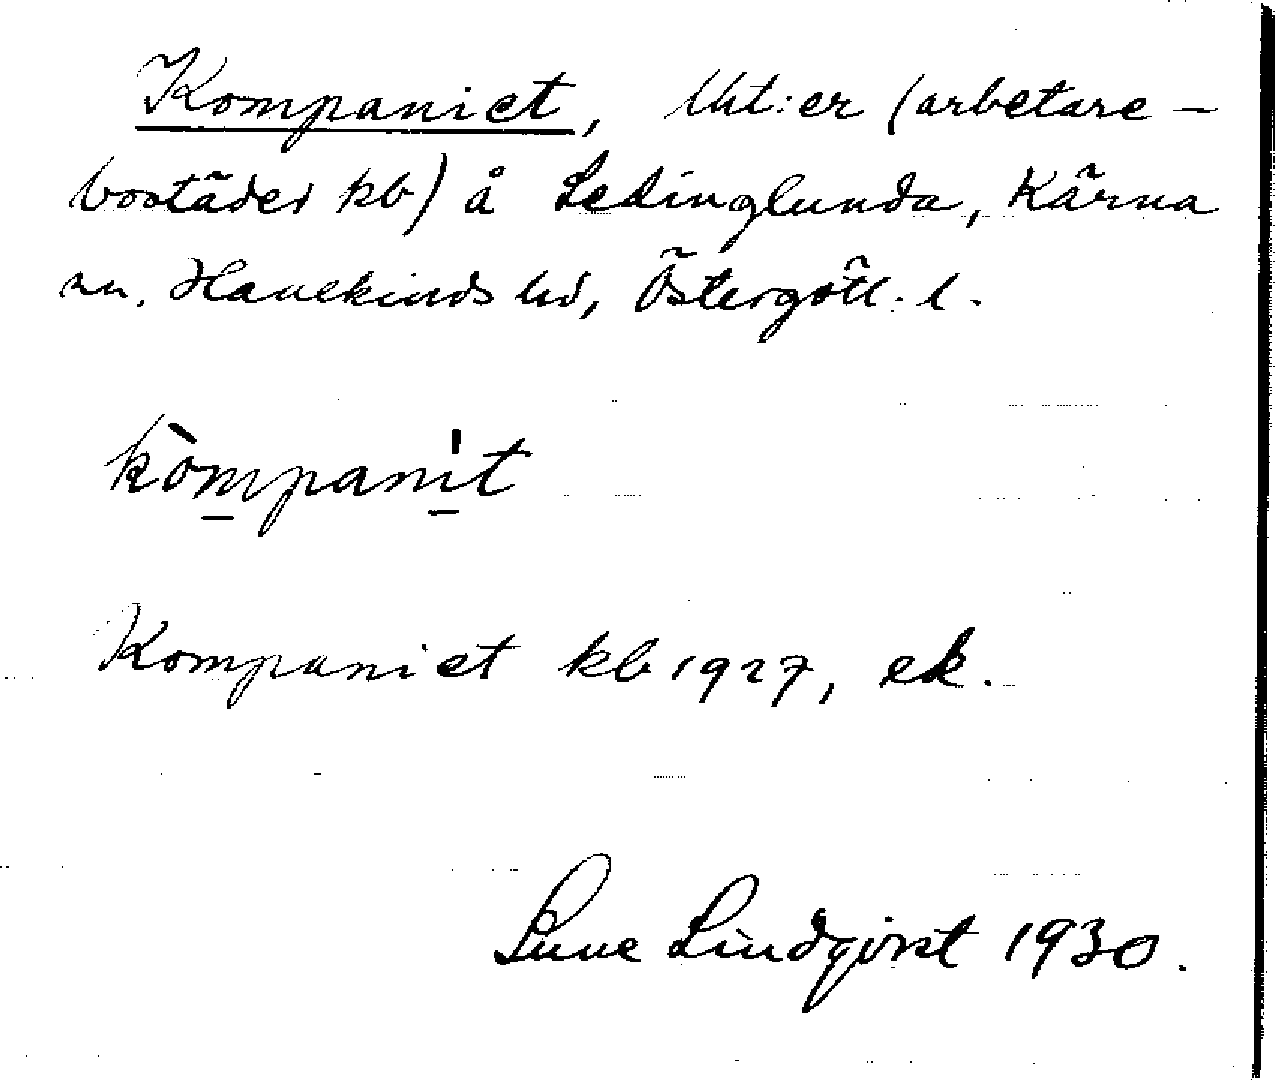 Kompaniet, lht:er (arbetare-
bostäder kb) å Ledinglunda, Kärna
sn. Hanekinds hd, Östergötl. l.
kòmpanı̍t
Kompaniet kb 1927, ek.
Sune Lindqvist 1930.